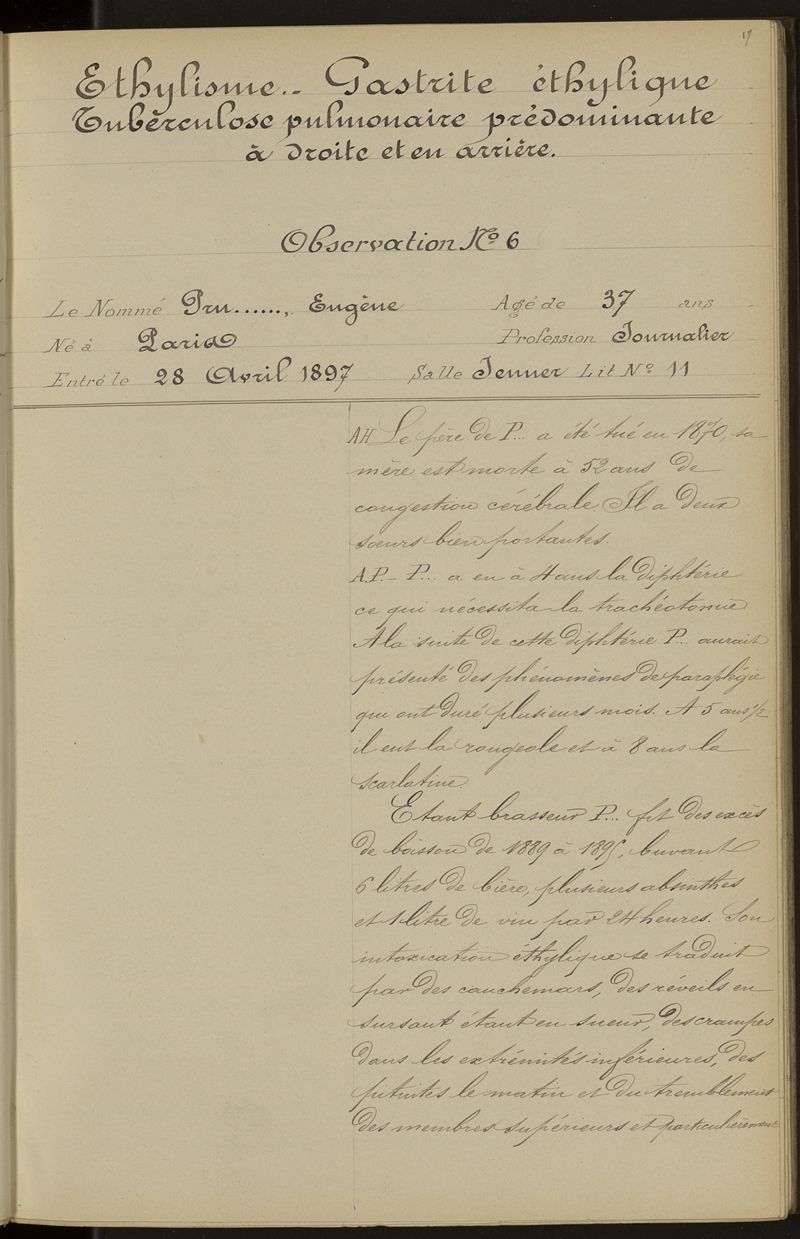 17
Ethylisme.- Gastrite éthylique
Tuberculose pulmonaire prédominante
à droite et en arrière.
Observation No 6
Le Nommé Pru......, Eugène Agé de 37 ans
Né à Paris Profession Journalier
Entré le 28 Avril 1897 Salle Jenner Lit No 11
AH Le père de P... a été tué en 1870, sa
mère est morte à 52 ans de
congestion cérébrale. Il a deux
sœurs bien portantes.
A.P.- P... a eu à 4 ans la diphtérie
ce qui nécessita la trachéotomie
A la suite de cette diphtérie P... aurait
présenté des phénomènes de paraplégie
qui ont duré plusieurs mois. A 5 ans 1/2
il eut la rougeole et à 8 ans la
scarlatine.
Etant brasseur P... fit des excès
de boisson de 1889 à 1895, buvant
6 litres de bière, plusieurs absinthes
et 1 litre de vin par 24 heures. Son
intoxication éthylique se traduit
par des cauchemars, des réveils en
sursaut étant en sueur, des crampes
dans les extrémités inférieures, des
pituites le matin et du tremblement
des membres supérieurs et particulièrement